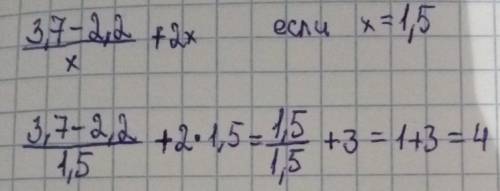 (3,7-2,2)/x + 2x если x=1,5
(3,7-2,2)/1,5 + 2·1,5 = 1,5/1,5 + 3 = 1+3 = 4